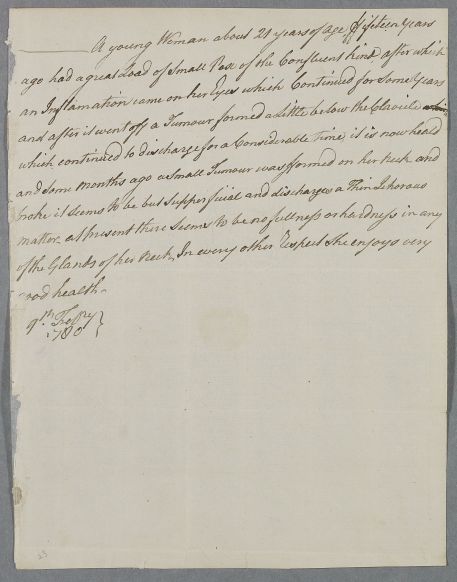 A young Woman about 21 years of age, fifteen Years
ago had a great Load of Small Pox of the Confluent kind after which
an Inflamation came on her Eyes which Continued for Some Years
and after it went off a Tumour formed a little below the Clavicle
which continued to discharge for a Considerable time, it is now heald
and some months ago a Small Tumour was fformed on her Neck and
broke it seems to be but supperficial and discharges a Thin Ichorous
matter. at present there seems to be no fullness or hardness in any
of the Glands of her Neck, In every other Respect she enjoys very
ood health.
9th Febry
1780
23